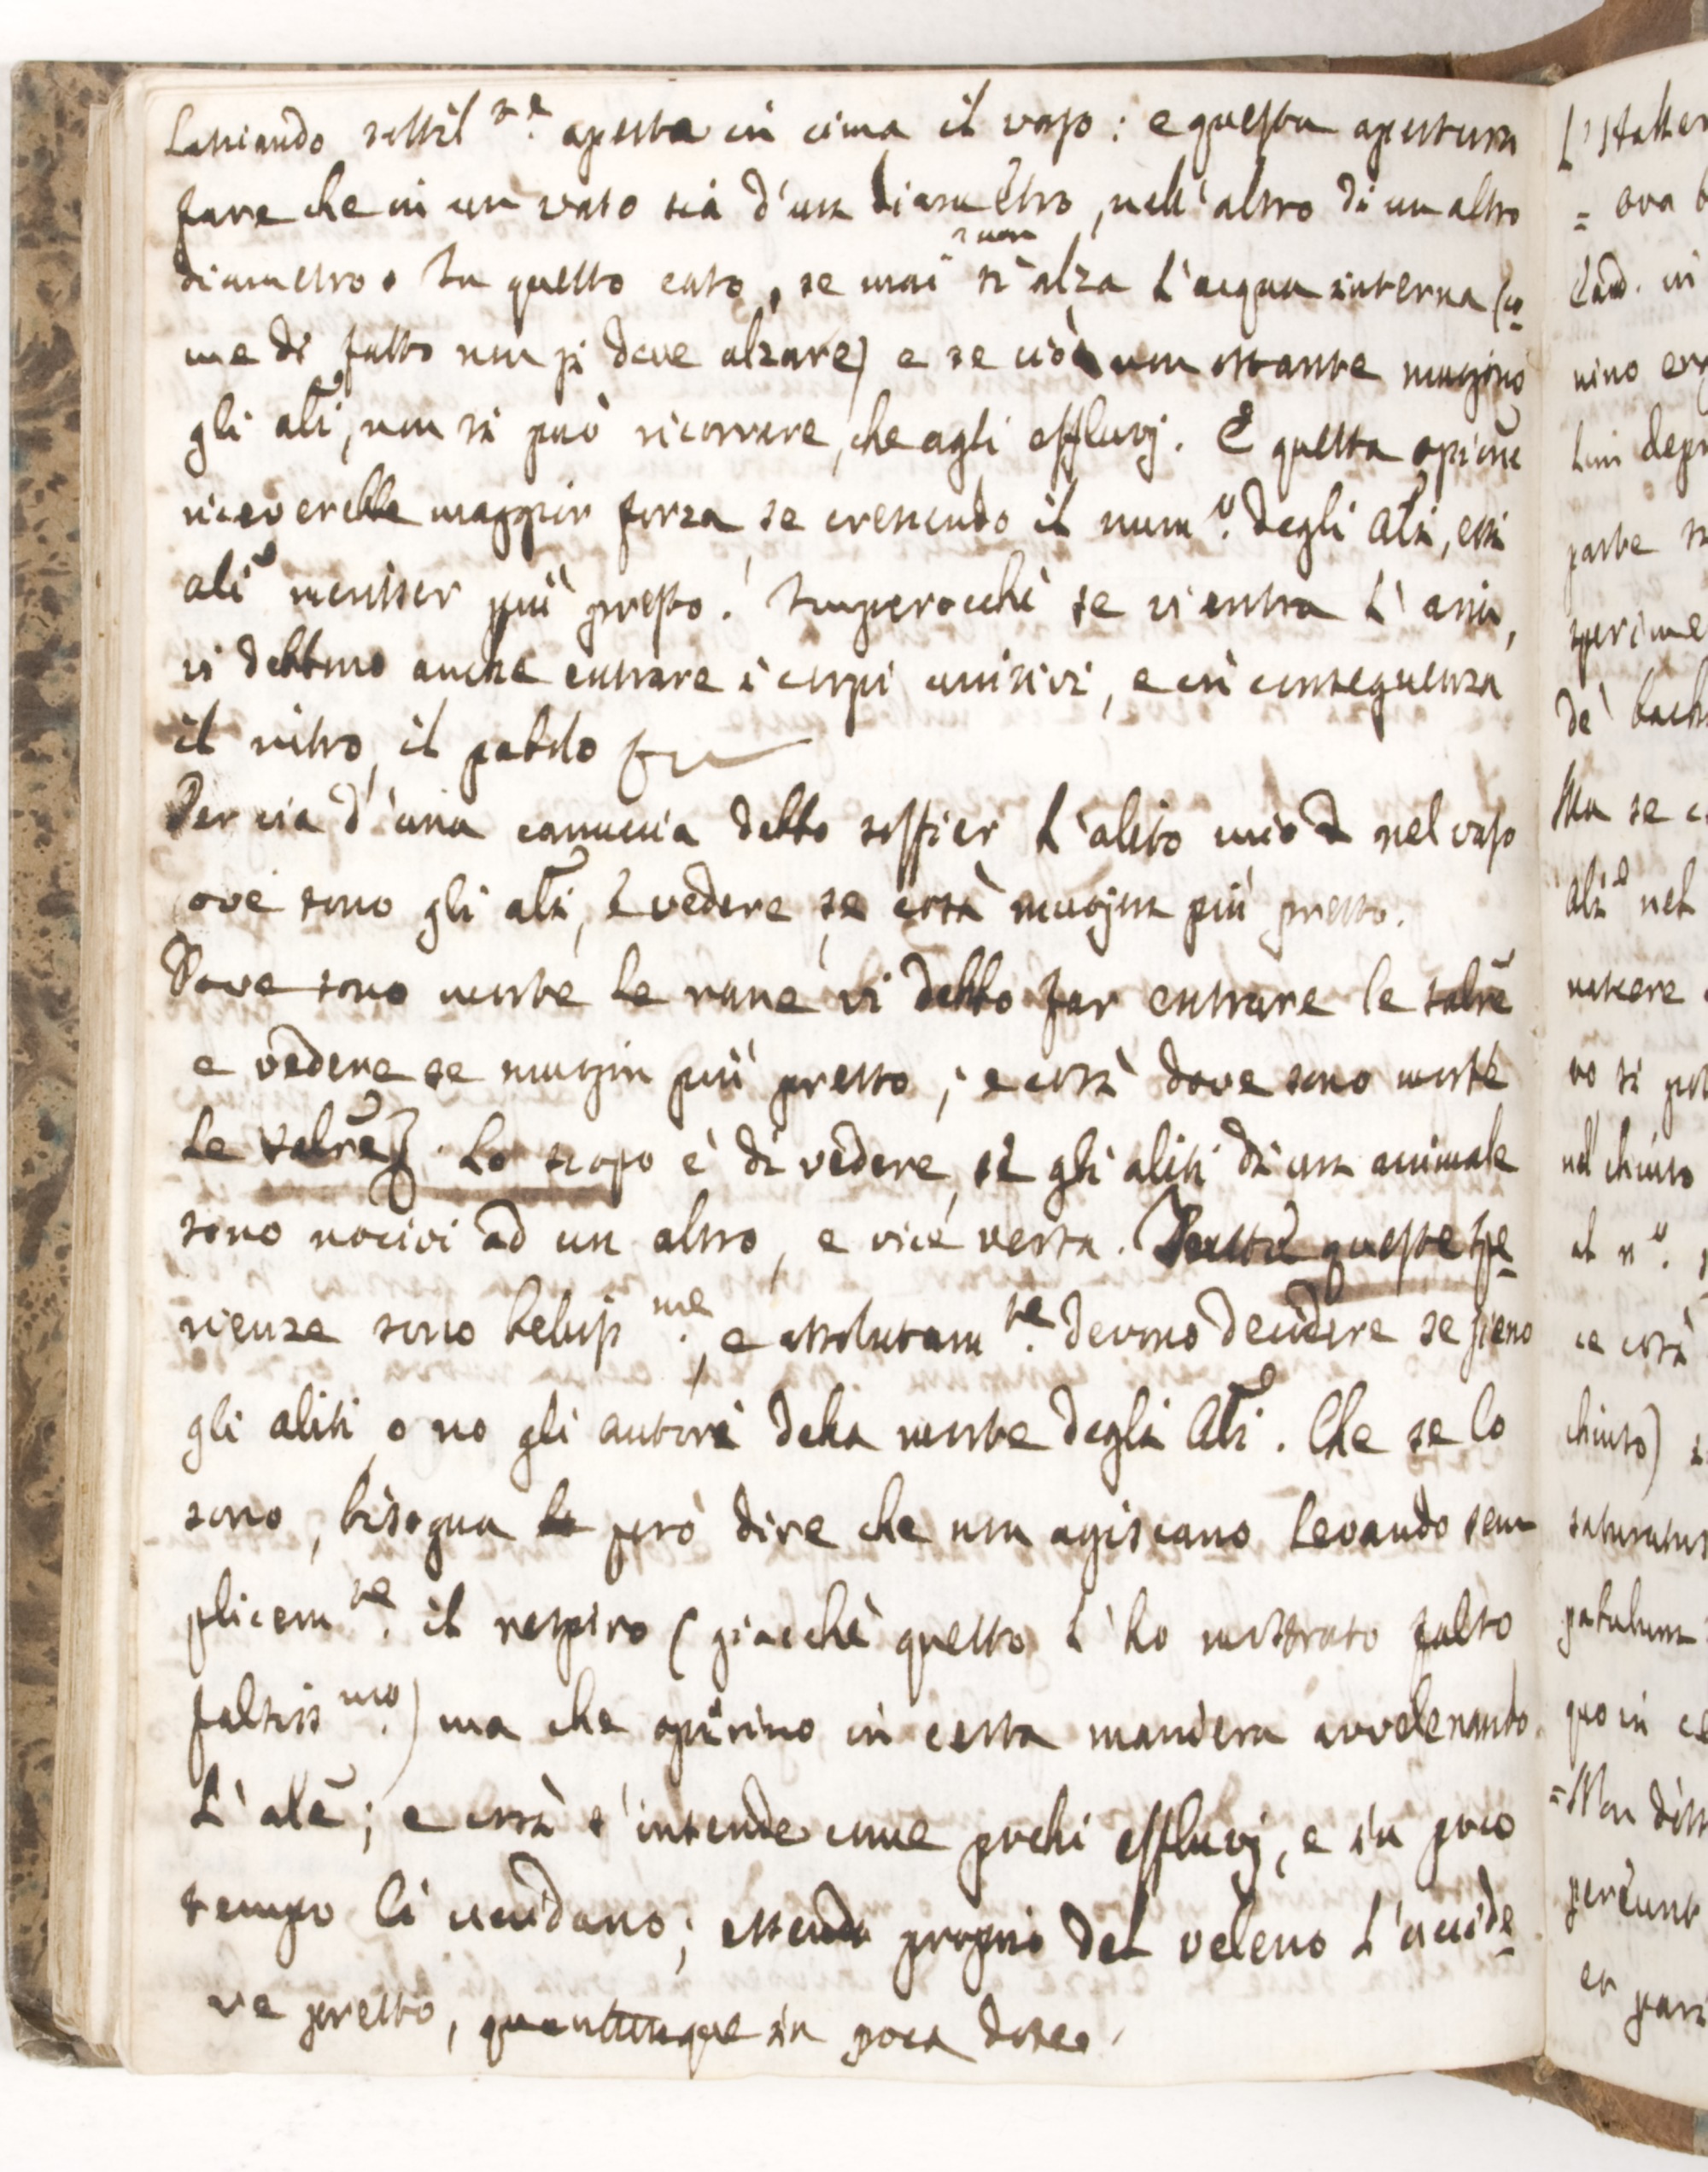 Lassiando sottil te. aperta in cima il vaso: e questa apertura
fare che in un vaso sia d'un diametro, nell'altro di un altro
diametro. In questo caso, se mai non si alza l'acqua interna (co=
me di fatto non si deve alzare) e se ciò non ostante muojono
gli ali, non si può ricorrere, che agli effluvj. E questa opione
riceverebbe maggior forza se crescendo il num o. degli ali, essi
ali morisser più presto. Imperocchè se vi entra l'aria,
vi debbono anche entrare i corpi unisivi, e in conseguenza
il nitro, il pabolo
Per via d'una cannuccia debbo soffier l'alito mio nel vaso
ove sono gli ali, e vedere se così muojon più presto.
Dove sono morte le rane vi debbo far entrare le salre
e vedere se muojin più presto; e così dove sono morte
le salre. Lo scopo è di vedere, se gli aliti di un animale
sono nocivi ad un altro, e vice versa. Tutte queste spe=
rienze sono bellis me., e assolutam te. devono decidere se sieno
gli aliti, o no gli autori della morte degli ali. Che se lo
sono, bisogna però dire che non agiscano levando sem
plicem te. il respiro (giacchè questo l'ho mostrato falso
falsiss mo.) ma che operino in certa maniera avvelenando
l'ale; e così s'intende come pochi effluvj, e in poco
tempo li uccidano; essendo proprio del veleno l'uccide=
re presto, quantunque in poca dose.
L'
= ova
Cand. in
nino
lini
parte
sperime
de' bach
Ma se
ali nel
nascere
vo si
nel chiuso
al n o.
ce così
chiuso)
pabulum
quo in
= Non
pereunt
et pari